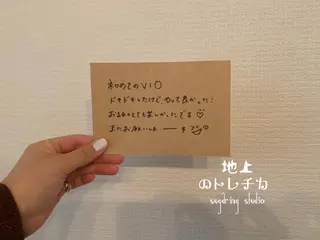 初めてのVIO
ドキドキしたけど、やって良かった!
おはなしとても楽しかったです
またお願いしまーーす
地上
のトレチカ
sugaring studio